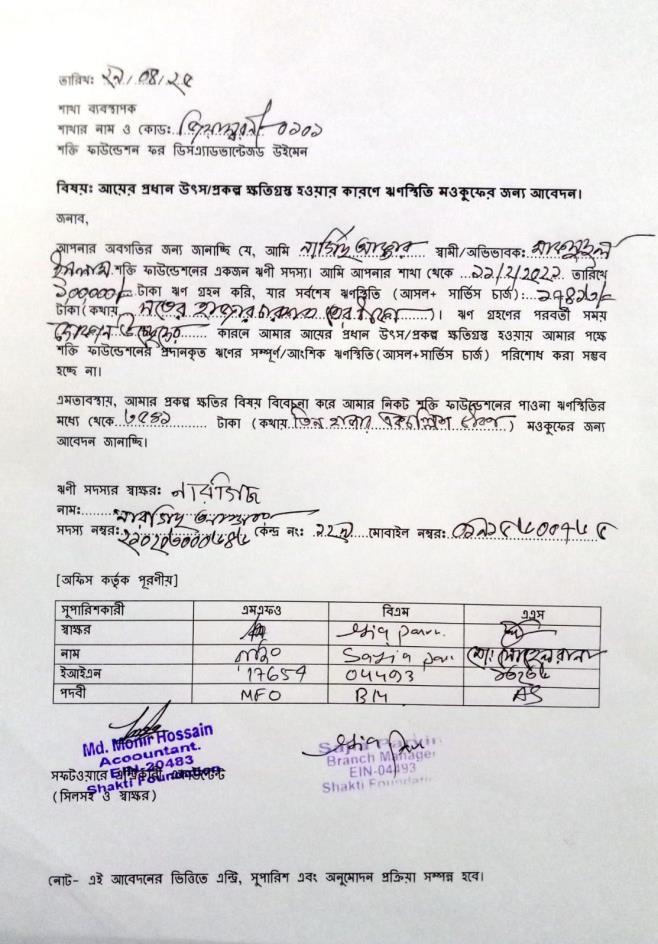 তারিখঃ ২৯/০৪/২৫
শাখা ব্যবস্থাপক
শাখার নাম ও কোডঃ ০১০১
শক্তি ফাউন্ডেশন ফর ডিসএ্যাডভান্টেজড উইমেন
বিষয়ঃ আয়ের প্রধান উৎস/প্রকল্প ক্ষতিগ্রস্ত হওয়ার কারণে ঋণস্থিতি মওকুফের জন্য আবেদন।
জনাব,
আপনার অবগতির জন্য জানাচ্ছি যে, আমি নার্গিছ আক্তার স্বামী/অভিভাবকঃ
ইসলাম শক্তি ফাউন্ডেশনের একজন ঋণী সদস্য। আমি আপনার শাখা থেকে ১১/২/২০২২ তারিখে
১০০০০০/- টাকা ঋণ গ্রহন করি, যার সর্বশেষ ঋণস্থিতি (আসল+ সার্ভিস চার্জ)ঃ
টাকা (কথায় সতের হাজার চারশত )। ঋণ গ্রহণের পরবর্তী সময়
কারনে আমার আয়ের প্রধান উৎস/প্রকল্প ক্ষতিগ্রস্ত হওয়ায় আমার পক্ষে
শক্তি ফাউন্ডেশনের প্রদানকৃত ঋণের সম্পূর্ণ/আংশিক ঋণস্থিতি (আসল+সার্ভিস চার্জ) পরিশোধ করা সম্ভব
হচ্ছে না।
এমতাবস্থায়, আমার প্রকল্প ক্ষতির বিষয় বিবেচনা করে আমার নিকট শক্তি ফাউন্ডেশনের পাওনা ঋণস্থিতির
মধ্যে থেকে টাকা (কথায় তিন হাজার ) মওকুফের জন্য
আবেদন জানাচ্ছি।
ঋণী সদস্যর স্বাক্ষরঃ নারগিজ
নামঃ নারগিছ আক্তার
সদস্য নম্বরঃ কেন্দ্র নং: মোবাইল নম্বরঃ
[অফিস কর্তৃক পূরণীয়]
সুপারিশকারী এমএফও বিএম এএস
স্বাক্ষর
নাম Sajia মোঃ সোহেল রানা
ইআইএন 17654 04493
পদবী MFO BM AS
Md. Monir Hossain
Acoountant.
EIN-20483
Shakti Foundation
Branch Manager
EIN-04493
Shakti Foundation
সফটওয়্যারে
(সিলসহ ও স্বাক্ষর)
নোট- এই আবেদনের ভিত্তিতে এন্ট্রি, সুপারিশ এবং অনুমোদন প্রক্রিয়া সম্পন্ন হবে।